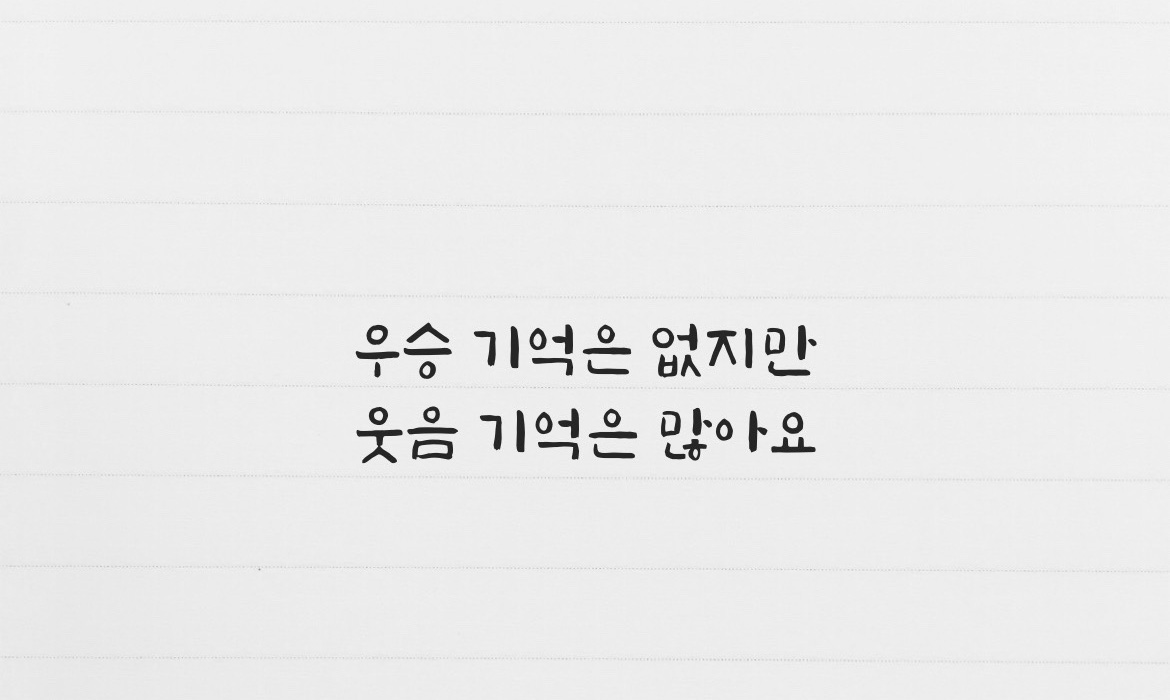 우승 기억은 없지만
웃음 기억은 많아요